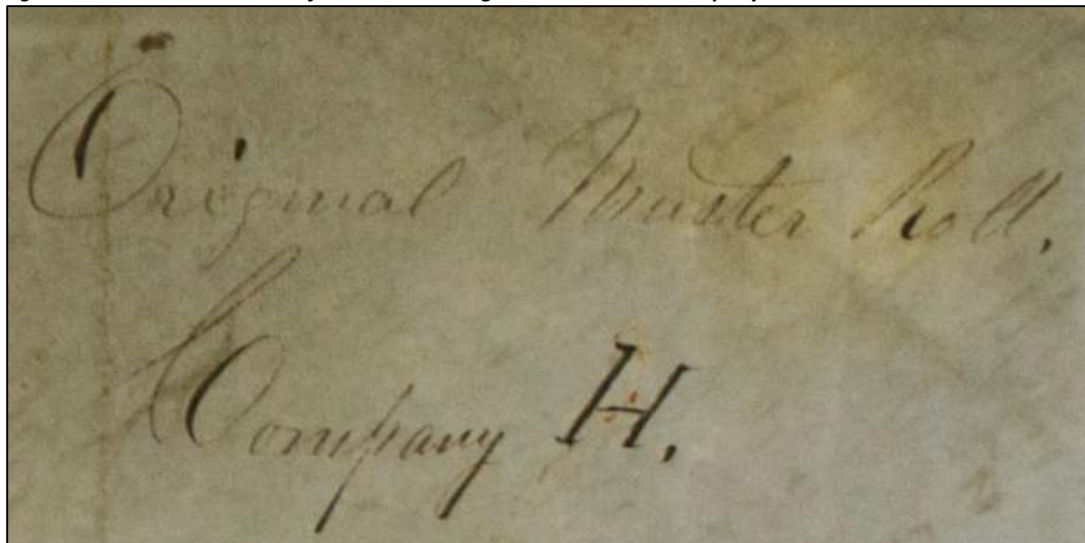 Original Muster Roll.
Company H.